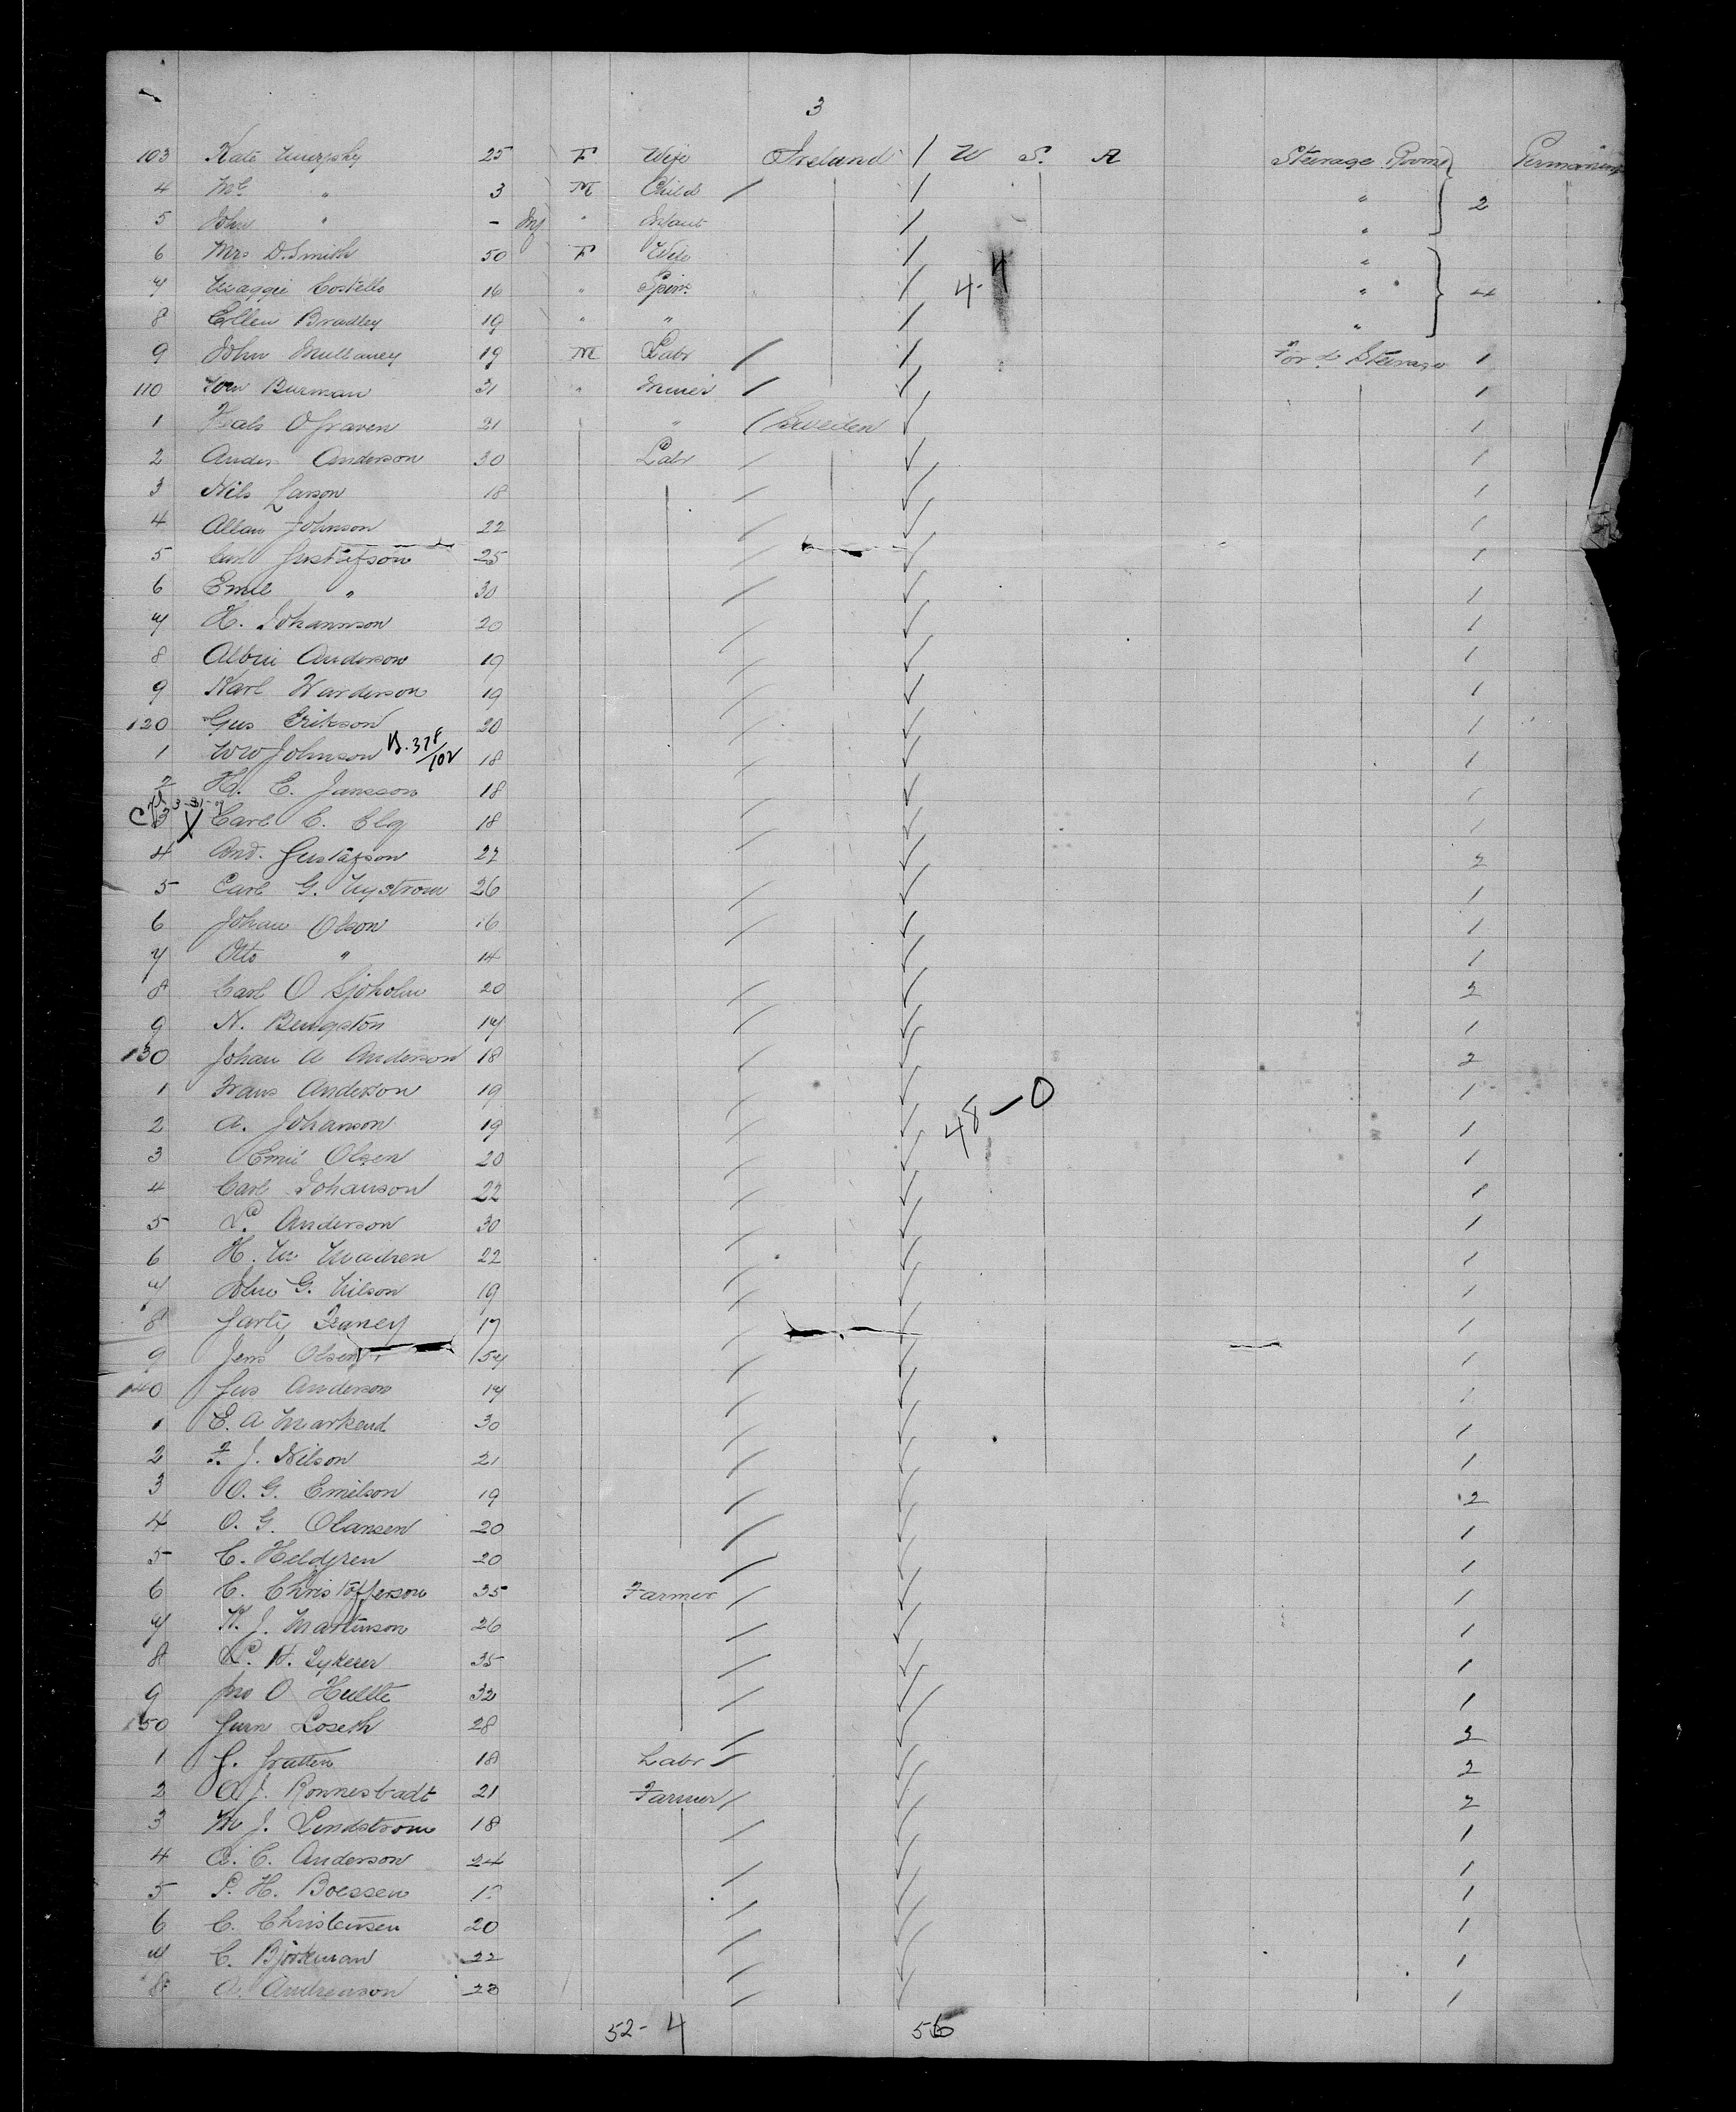 3
103 Kate Murphy 25 F Wife Ireland / U S. A Steerage Rooms Permanent
4 Wm " 3 M Child / / " 2
5 John " - Inf " Infant / "
6 Mrs D. Smith 50 F Wife / "
7 Maggie Costello 16 " Spinr / 4- " 4
8 Ellen Bradley 19 " " / "
9 John Mullaney 19 M Labr / / Ford Steerage 1
110 Burman 31 " Miner / / 1
1 21 " / Sweden 1
2 Ander Anderson 30 Labr / 1
3 Nils Larson 18 / 1
4 Allan Johnson 22 / 1
5 Carl Gustafson 25 / 1
6 Emil " 30 / 1
7 H. Johannson 20 / 1
8 Albin Anderson 19 / 1
9 Karl Warderson 19 / 1
120 Gus Erikson 20 / 1
1 W W Johnson B.378/102 18 / 1
2 E. Jansson 18 / 1
3 X Carl C. Elg 18 / 1
4 And. Gustafson 27 / 2
5 Carl G. Nystrom 26 / 1
6 Johan Olson 16 / 1
7 Otto " 14 1
8 Carl O Sjoholm 20 / 2
9 N. Bengston 17 / 1
130 Johan A Anderson 18 / 2
1 Frans Anderson 19 / 1
2 A. Johanson 19 / 48-0 1
3 Emil Olsen 20 / 1
4 Carl Johanson 22 / 1
5 L. Anderson 30 / 1
6 H. M. Madsen 22 / 1
7 John G. Nilson 19 / 1
8 17 / 1
9 Jens Olsen 54 / 1
140 Gus Anderson 17 / 1
1 E. A Markend 30 / 1
2 F. J. Nilson 21 / 1
3 O. G. Emilson 19 / 2
4 O. G. Olansen 20 / 1
5 C. Heldgren 20 / 1
6 C. Christofferson 35 Farmer / 1
7 K. J. Martinson 26 / 1
8 35 / 1
9 Jno O Hultte 32 / 1
150 Loseth 28 / 2
1 J. Gratten 18 Labr / 2
2 A J. Ronnesbadt 21 Farmer / 2
3 M J. Lindstrom 18 / 1
4 A. C. Anderson 24 / 1
5 P. H. Boessen / 1
6 C. Christensen 20 / 1
7 C. Björkman 22 / 1
8 A. Andreason 23 / 1
52-4 56